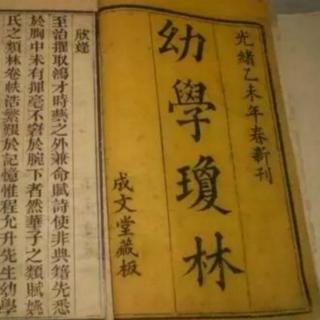 光緒乙未年春新刊
幼學瓊林
成文堂藏板
欣逢
至治擢取鴻才時藝之外兼命賦詩使非典籍先悉
於胸中未有揮毫不窘於腕下者然華子之類賦姚
氏之類林卷帙浩繁艱於記憶惟程允升先生幼學